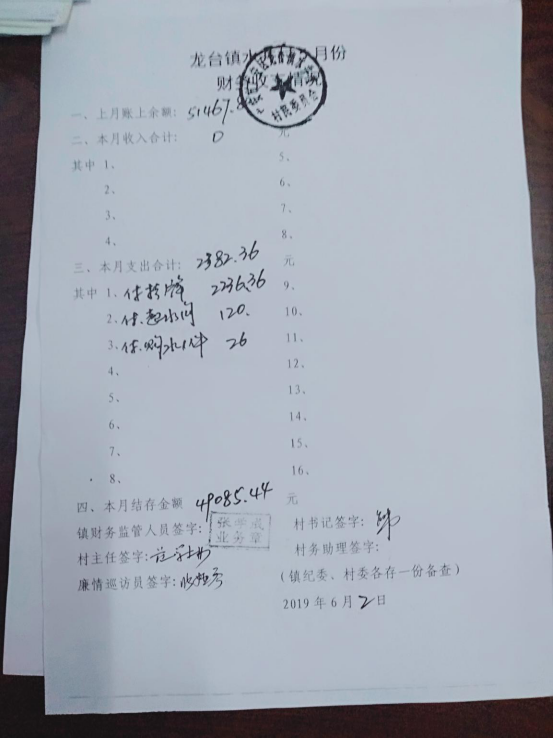 龙台镇水 月份
财务收支情况
村民委员会
一、上月账上余额: 51467.8
二、本月收入合计: 0 元
其中 1、 5、
2、 6、
3、 7、
4、 8、
三、本月支出合计: 2382.36 元
其中 1、付 2236.36 9、
2、付 120. 10、
3、付 26 11、
4、 12、
5、 13、
6、 14、
7、 15、
8、 16、
四、本月结存金额 49085.44 元
镇财务监管人员签字: 张 业务章 村书记签字:
村主任签字: 村务助理签字:
廉情巡访员签字: (镇纪委、村委各存一份备查)
2019 年 6 月 2 日